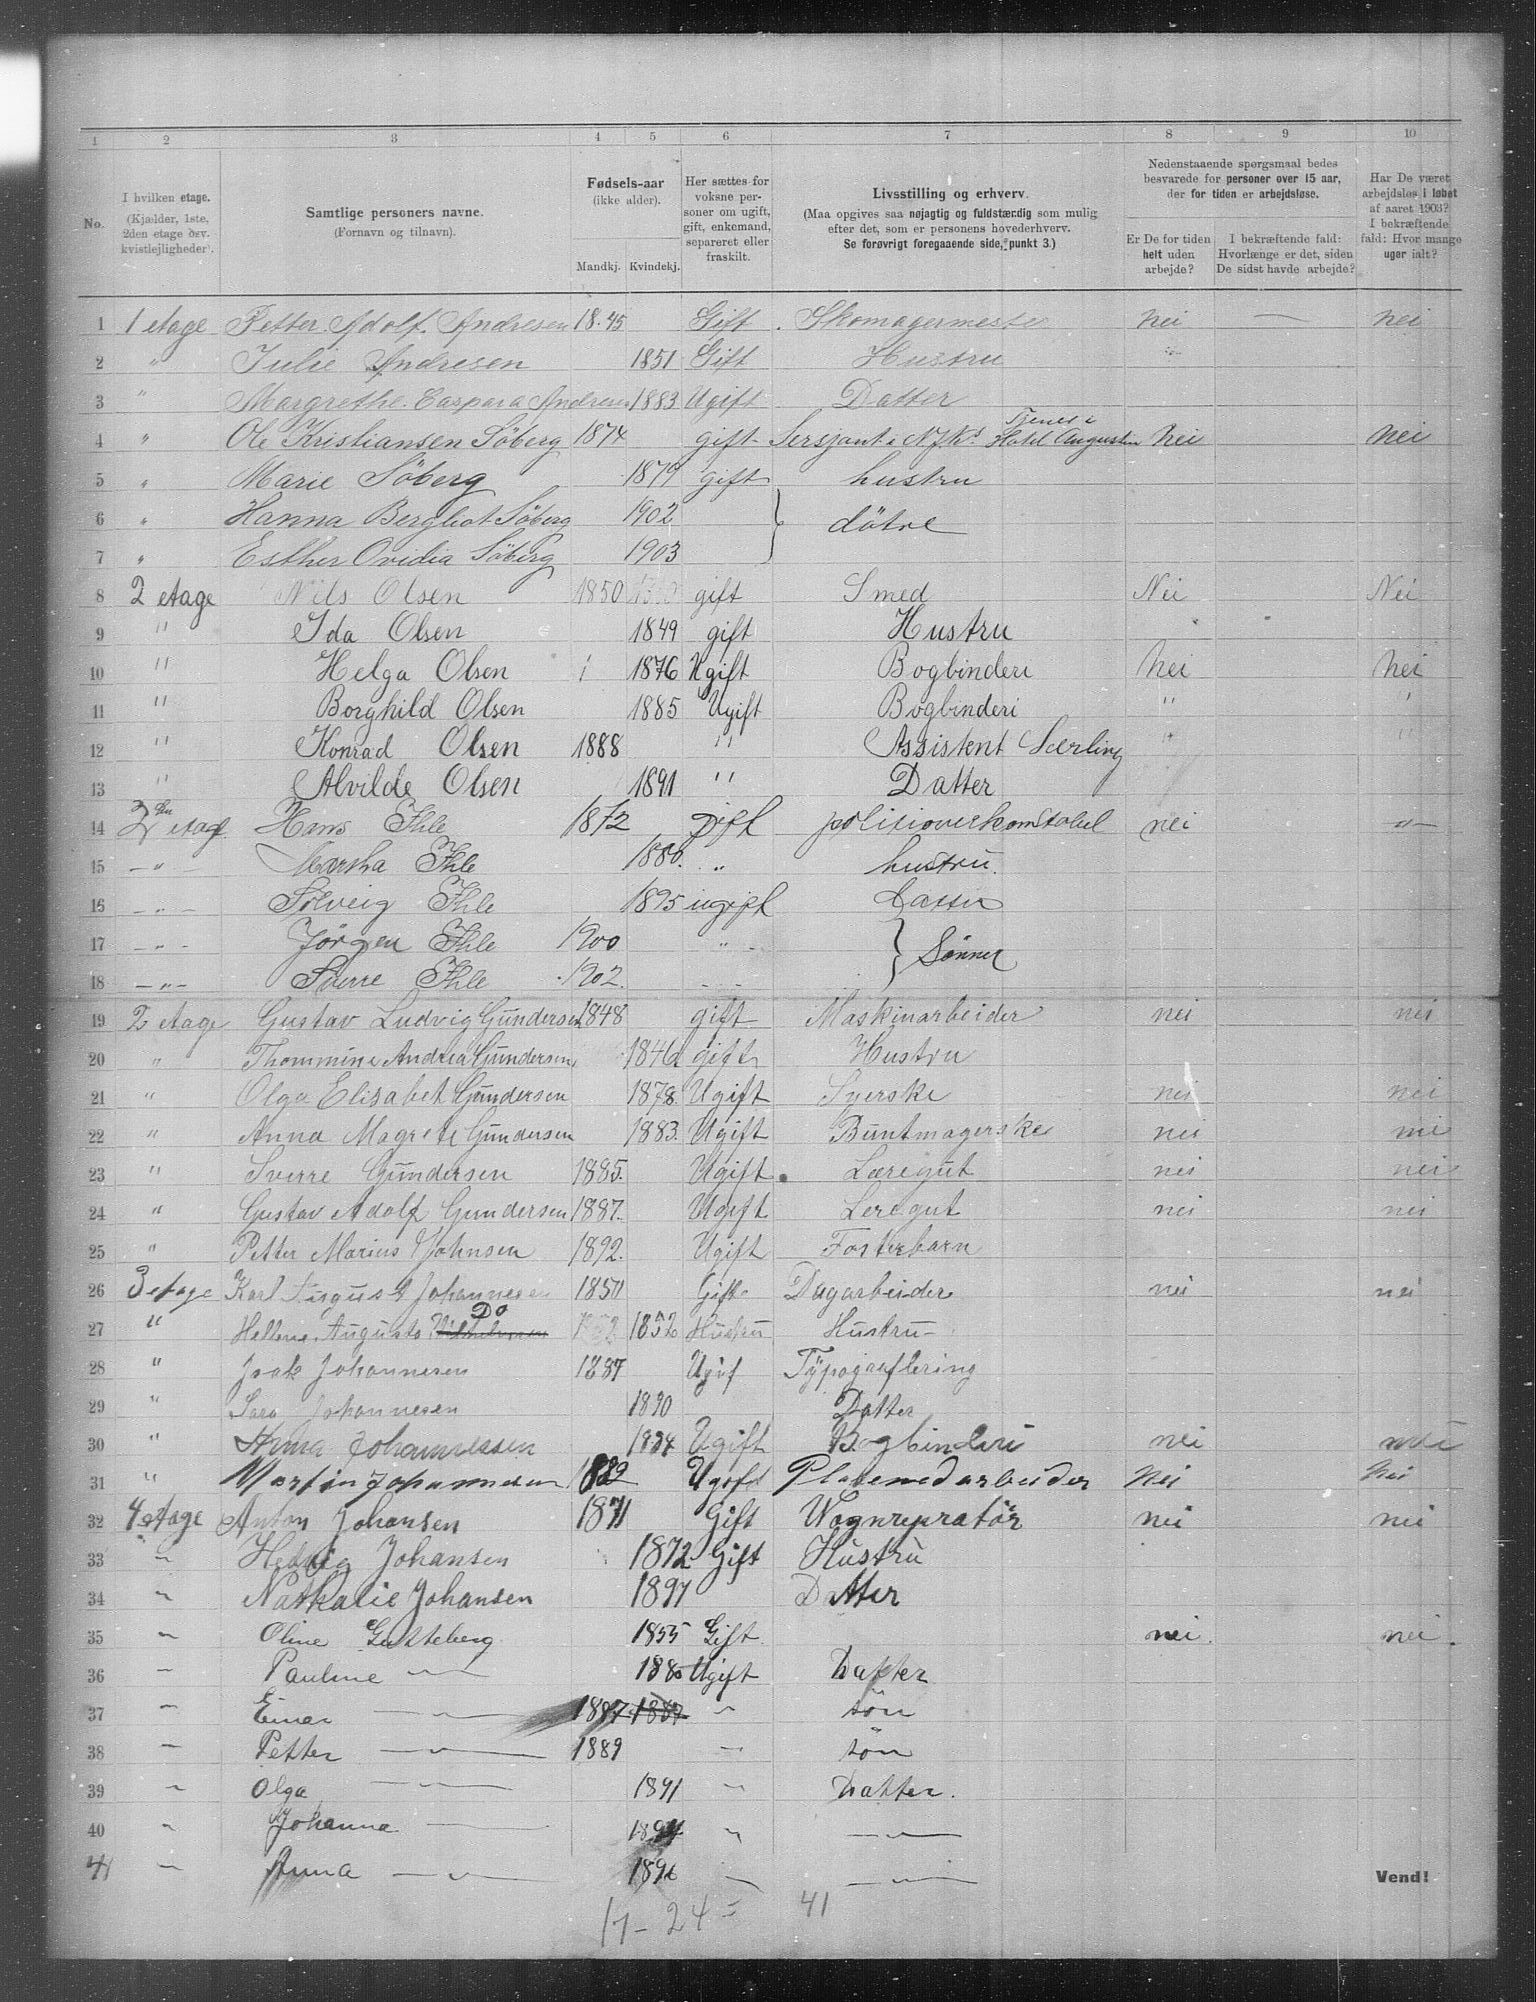 1 2 3 4 5 6 7 8 9 10
No.
I hvilken etage.
(Kjælder, 1ste, 2den etage osv. kvistlejligheder).
Samtlige personers navne.
(Fornavn og tilnavn).
Fødsels-aar
(ikke alder).
Mandkj. Kvindekj.
Her sættes for voksne personer om ugift, gift, enkemand, separeret eller fraskilt.
Livsstilling og erhverv.
(Maa opgives saa nøjagtig og fuldstændig som mulig efter det, som er personens hovederhverv.
Se forøvrigt foregaaende side, punkt 3.)
Nedenstaaende spørgsmaal bedes besvarede for personer over 15 aar, der for tiden er arbejdsløse.
Er De for tiden helt uden arbejde?
I bekræftende fald: Hvorlænge er det, siden De sidst havde arbejde?
Har De været arbejdsløs i løbet af aaret 1903? I bekræftende fald: Hvor mange uger ialt?
1 1 etage Petter Adolf Andresen 18.45 Gift Skomagermester nei — nei
2 " Julie Andresen 1851 Gift Hustru "
3 " Margrethe Caspara Andresen 1883 Ugift Datter
4 " Ole Kristiansen Söberg 1874 gift Sersjant i N.J.K. Tjener i Hotel Augustin nei nei
5 " Marie Söberg 1879 gift hustru
6 " Hanna Bergliot Söberg 1902 } dötre
7 " Esther Ovidia Söberg 1903
8 2 etage Nils Olsen 1850 gift Smed Nei Nei
9 " Ida Olsen 1849 gift Hustru
10 " Helga Olsen 1876 Ugift Bogbinderi nei nei
11 " Borghild Olsen 1885 Ugift Bogbinderi " "
12 " Konrad Olsen 1888 " Assistent Lærling " "
13 " Alvilde Olsen 1891 " Datter
14 etage Hans Ihle 1872 gift politioverkonstabel nei -"-
15 -"- Martha Ihle 1880. " hustru.
16 -"- Solveig Ihle 1895 ugift datter
17 -"- Jörgen Ihle 1900 " } Sönner
18 -"- Sverre Ihle 1902.
19 2 etage Gustav Ludvig Gundersen 1848 gift Maskinarbeider nei nei
20 " Thommine Andrea Gundersen 1846 gift Hustru
21 " Olga Elisabet Gundersen 1878. Ugift Syerske nei nei
22 " Anna Magrete Gundersen 1883. Ugift Buntmagerske nei nei
23 " Sverre Gundersen 1885. Ugift Læregut nei nei
24 " Gustav Adolf Gundersen 1887. Ugift Leregut nei nei
25 " Petter Marius Johnsen 1892. Ugift Fosterbarn
26 3 etage Karl August Johannesen 1851 Gift Dagarbeider nei nei
27 " Hellene Augusta Do 1852 Hustru Hustru
28 " Isak Johannesen 1887 Ugif Typograflering
29 " Sara Johannesen 1890 Datter
30 " Anna Johannessen 1884 Ugift Bogbinderi nei nei
31 " Martin Johannesen 1882 Ugift arbeider nei nei
32 4 etage Anton Johansen 1871 Gift Vognrepratör nei nei
33 " Hedvig Johansen 1872 Gift Hustru
34 " Nathalie Johansen 1897 Datter
35 " Oline Gutteberg 1855 Gift nei. nei.
36 " Pauline —"— 1880 Ugift Datter
37 " Einar —"— 1887 1887 " sön
38 " Petter —"— 1889 " sön
39 " Olga —"— 1891 " Datter.
40 " Johanna —"— 1894 " —"—
41 " Anna —"— 1896 " —"—
Vend!
17 - 24 = 41